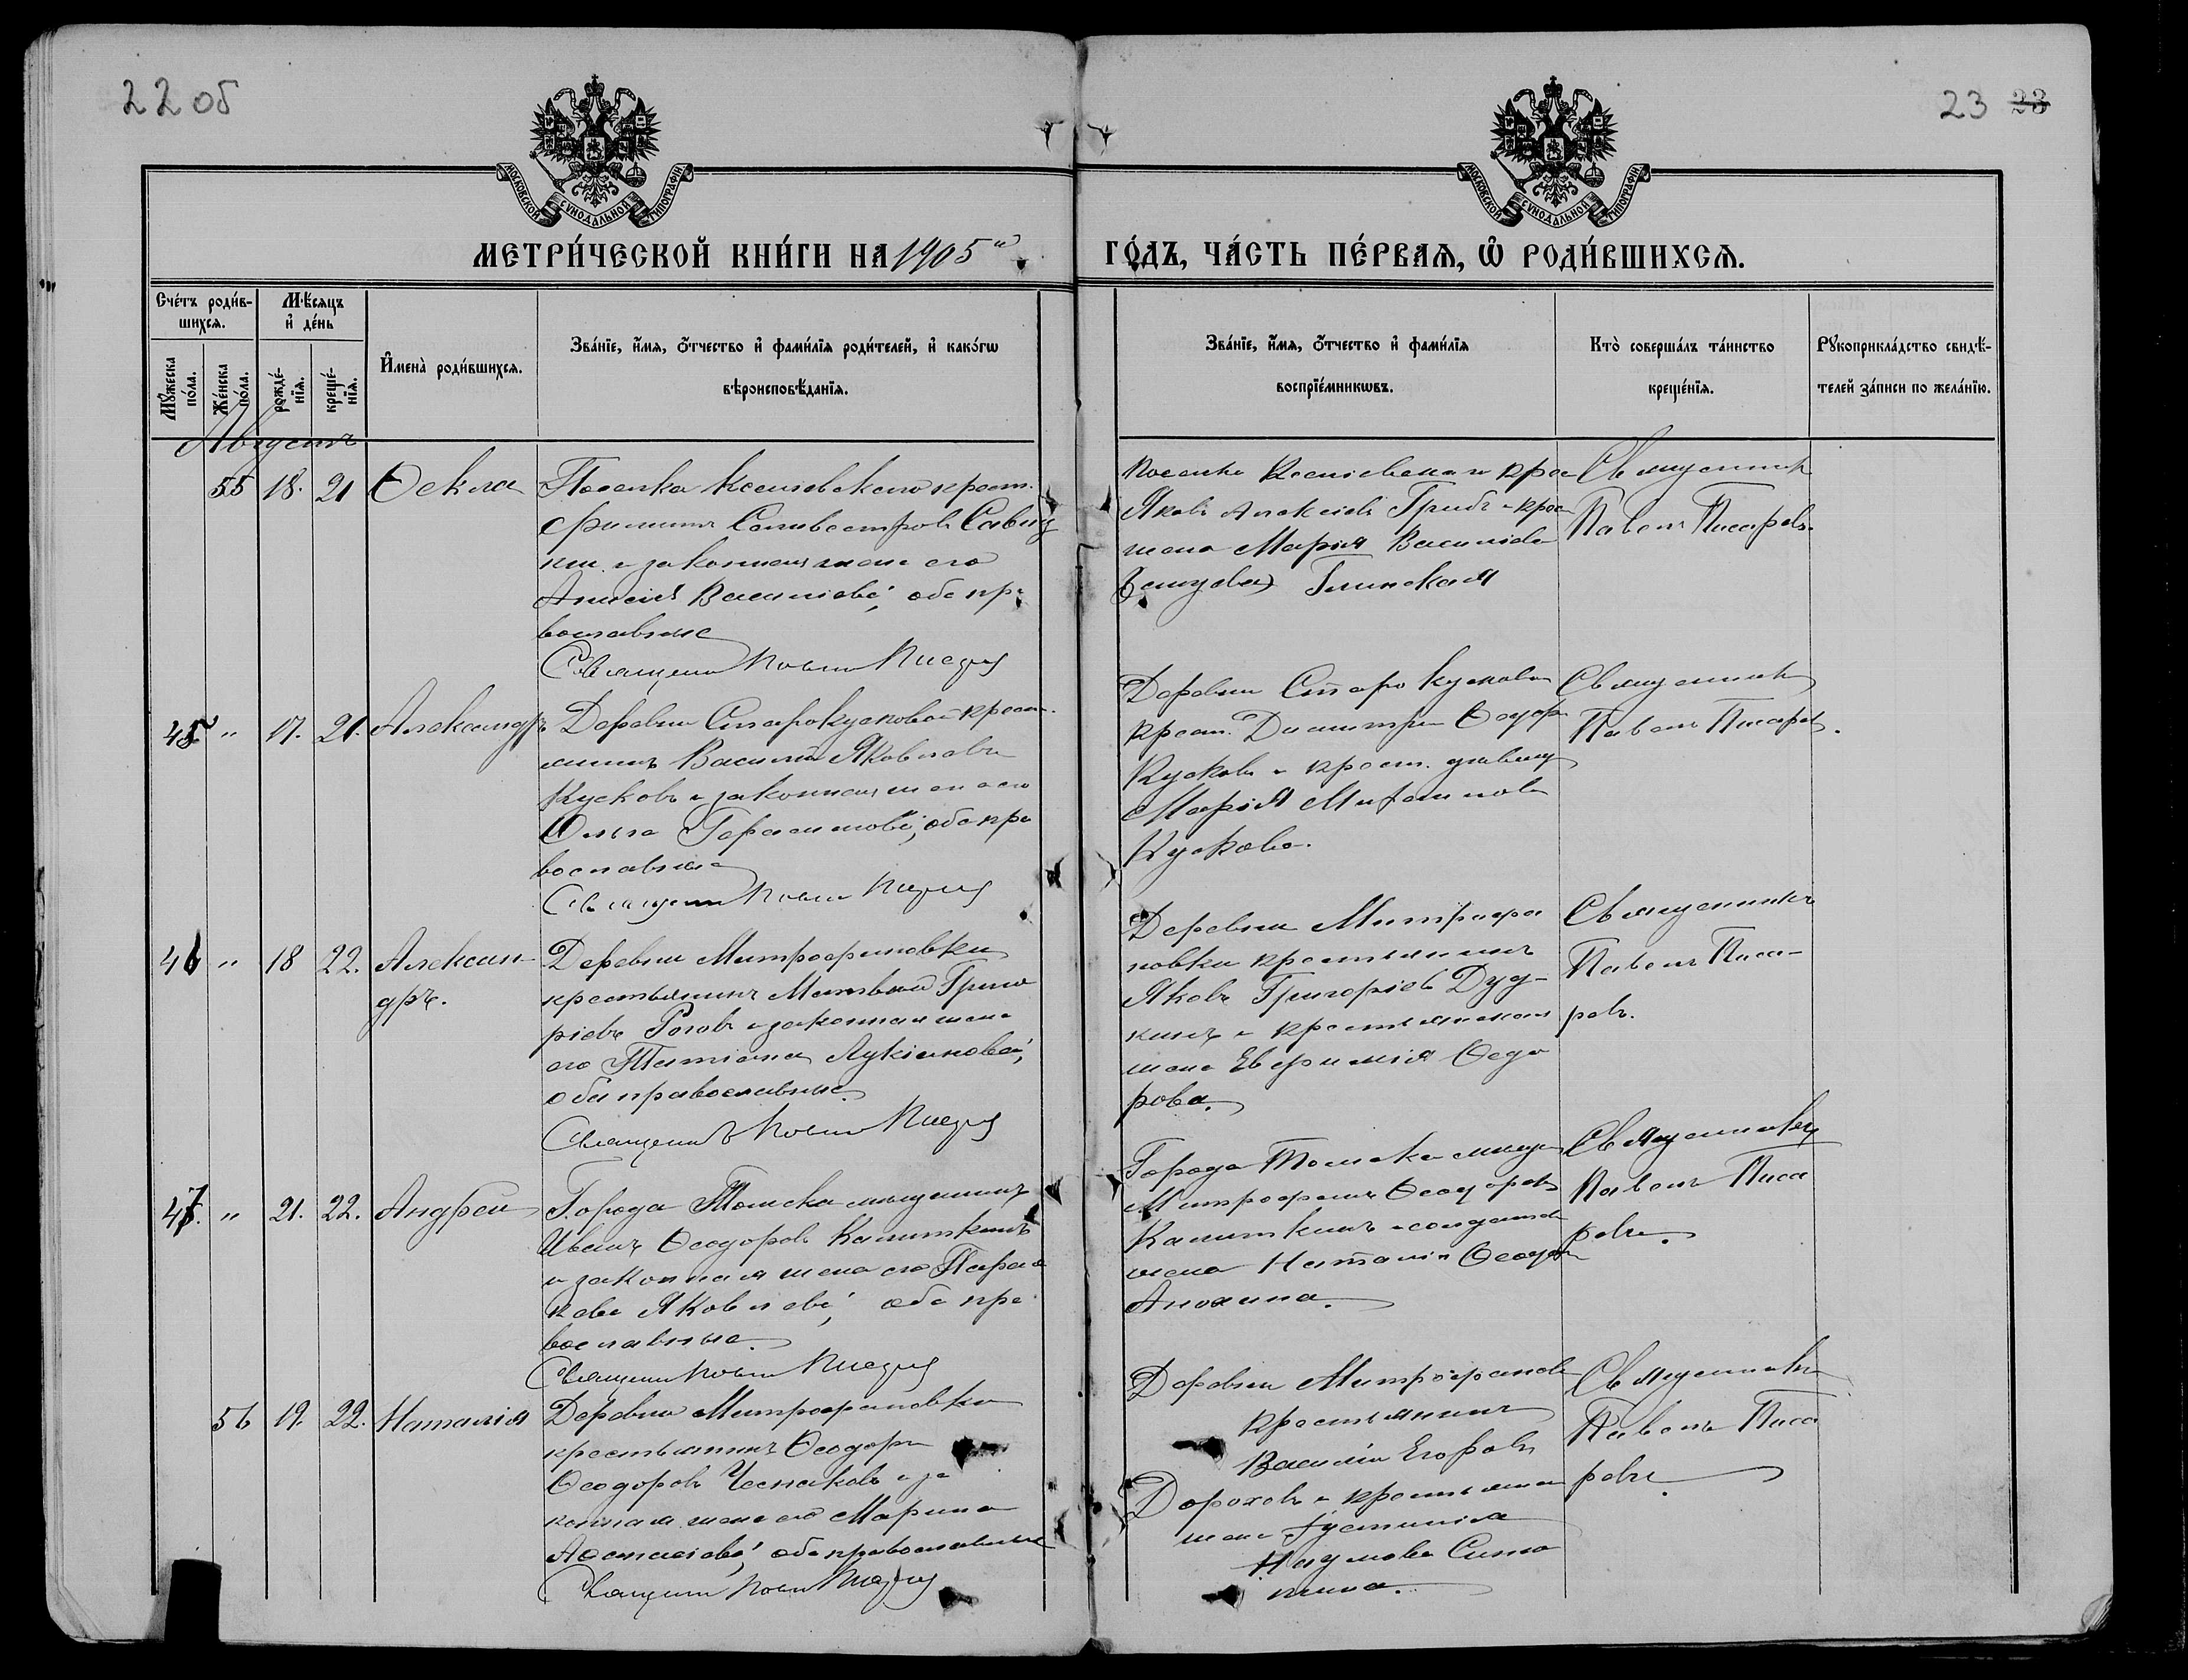 22 об
23 23
МОСКОВСКОЙ СУНОДАЛЬНОЙ ТИПОГРАФІИ
МОСКОВСКОЙ СУНОДАЛЬНОЙ ТИПОГРАФІИ
МЕТРИ́ЧЕСКОЙ КНИ́ГИ НА 1905й
ГО́ДЪ, ЧА́СТЬ ПЕ́РВАѦ, Ѡ҆ РОДИ́ВШИХСѦ.
Сче́тъ роди́в-
шихсѧ.
Мѣ́сѧцъ
и҆ де́нь
Мꙋ́жеска
по́ла.
Же́нска
по́ла.
рожде́-
нїѧ.
креще́-
нїѧ.
И҆мена̀ роди́вшихсѧ.
Зва́нїе, и҆́мѧ, ѻ҆́тчество и҆ фами́лїѧ роди́телей, и҆ како́гѡ
вѣроисповѣ́данїѧ.
Зва́нїе, и҆́мѧ, ѻ҆́тчество и҆ фами́лїѧ
воспрїе́мникѡвъ.
Кто̀ соверша́лъ та́инство
креще́нїѧ.
Рꙋкоприкла́дство свидѣ́-
телей за́писи по жела́нїю.
Августъ
55 18. 21 Ѳекла
Поселка Ксеніевскаго крест.
Филиппъ Селивестровъ Савиц
кій и законная жена его
Анисія Васильева, оба пра
вославные
Священникъ Павелъ Писаревъ
Поселка Ксеніевскаго крес
Яковъ Алексіевъ Грибъ и крес
жена Марія Васильева
Глинская
Священникъ
Павелъ Писаревъ.
45 " 17. 21. Александръ
Деревни Старокусковой крест.
янинъ Василій Яковлевъ
Кусковъ и законная жена его
Ольга Герасимова, оба пра
вославные
Священникъ Павелъ Писаревъ
Деревни Старо Кусковой
крест. Димитрій Ѳеодор
Кусковъ и крест. дѣвица
Марія Митаилова
Кускова.
Священникъ
Павелъ Писаревъ.
46 " 18 22. Алексан-
дръ.
Деревни Митрофановки
крестьянинъ Матвѣй Григо
ріевъ Роговъ и законная жена
его Татіана Лукіанова,
оба православные.
Священникъ Павелъ Писаревъ
Деревни Митрофа
новки крестьянинъ
Яковъ Григоріевъ Дуд-
кинъ и крестьянская
жена Евфимія Ѳедо
рова.
Священникъ
Павелъ Писа-
ревъ.
47. " 21. 22. Андрей
Города Томска мѣщанинъ
Иванъ Ѳеодоровъ Калиткинъ
и законная жена его Парас
кева Яковлева, оба пра
вославные.
Священникъ Павелъ Писаревъ
Города Томска мѣщан
Митрофанъ Ѳеодоровъ
Калиткинъ и солдатск
жена Наталія Ѳеодор
Анохина.
Священникъ
Павелъ Писа
ревъ.
56 19. 22. Наталія
Деревни Митрофановки
крестьянинъ Ѳеодоръ
Ѳеодоровъ Чеснаковъ и за
конная жена его Марина
Аѳанасіева, оба православные
Священникъ Павелъ Писаревъ
Деревни Митрофанов
крестьянинъ
Василій Егоровъ
Дороховъ и крестьянск
жена Іустинія
Наумова Сита
кина.
Священникъ
Павелъ Писа
ревъ.